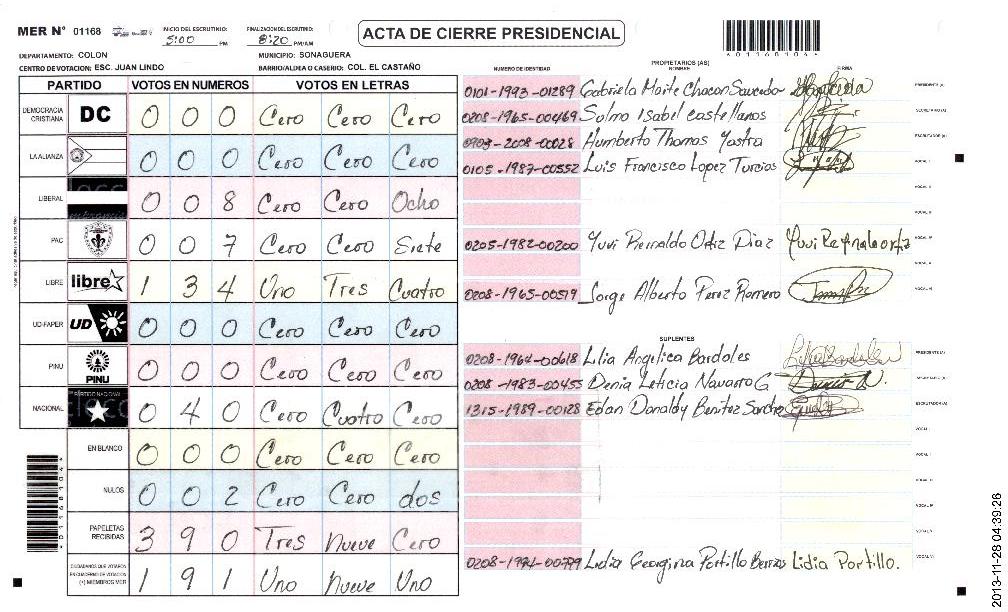 MER N° 01168
INICIO DEL ESCRUTINIO:
5:00 PM
FINALIZACION DEL ESCRUTINIO:
8:20 PM/AM
ACTA DE CIERRE PRESIDENCIAL
DEPARTAMENTO: COLON
MUNICIPIO: SONAGUERA
CENTRO DE VOTACION: ESC. JUAN LINDO
BARRIO/ALDEA O CASERIO: COL. EL CASTAÑO
PARTIDO VOTOS EN NUMEROS VOTOS EN LETRAS
DEMOCRACIA CRISTIANA DC 0 0 0 Cero Cero Cero
LA ALIANZA 0 0 0 Cero Cero Cero
LIBERAL 0 0 8 Cero Cero Ocho
PAC 0 0 7 Cero Cero Siete
LIBRE libre 1 3 4 Uno Tres Cuatro
UD-FAPER UD 0 0 0 Cero Cero Cero
PINU PINU 0 0 0 Cero Cero Cero
NACIONAL PARTIDO NACIONAL 0 4 0 Cero Cuatro Cero
EN BLANCO 0 0 0 Cero Cero Cero
NULOS 0 0 2 Cero Cero dos
PAPELETAS RECIBIDAS 3 9 0 Tres Nueve Cero
CIUDADANOS QUE VOTARON EN CUADERNO DE VOTACION (+) MIEMBROS MER 1 9 1 Uno Nueve Uno
PROPIETARIOS (AS)
NUMERO DE IDENTIDAD NOMBRE FIRMA
0101-1993-01289 Gabriela Maite Chacon PRESIDENTE (A)
0208-1965-00469 Solmo Isabel castellanos SECRETARIO (A)
0903-2008-00028 Humberto Thomas ESCRUTADOR (A)
0105-1987-00552 Luis Francisco Lopez Turcios VOCAL I
VOCAL II
VOCAL III
0205-1982-00200 Yuvi Reinaldo Ortiz Diaz VOCAL IV
VOCAL V
0208-1965-00519 Jorge Alberto Perez Romero VOCAL VI
SUPLENTES
0208-1964-00618 Lilia Angelica Bardales PRESIDENTE (A)
0208-1983-00455 Denia Leticia Navarro G SECRETARIO (A)
1315-1989-00128 Edan Donaldy Benitez ESCRUTADOR (A)
VOCAL I
VOCAL II
VOCAL III
VOCAL IV
VOCAL V
Lidia Georgina Portillo Lidia Portillo. VOCAL VI
2013-11-28 04:39:26